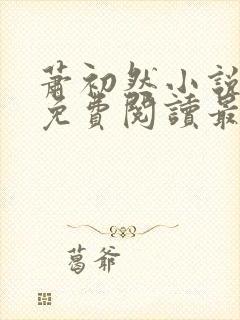 蕭初然小說
免費閱讀最
葛爺